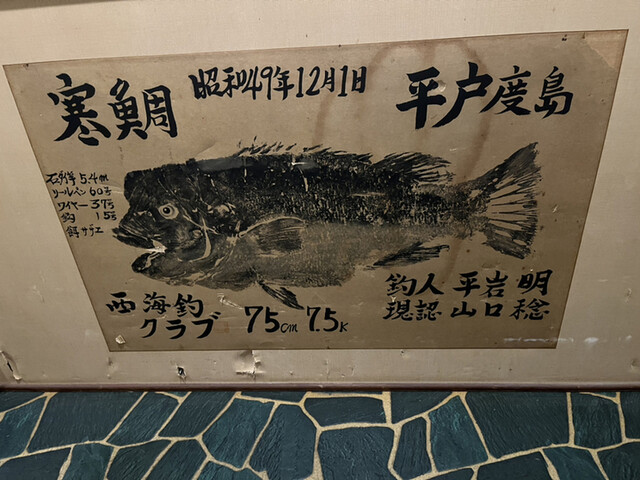 寒鯛
昭和49年12月1日
平戸度島
石鯛竿 5.4m
リールペン 60号
ワイヤー 37号
鈎 15号
餌 サザエ
西海釣クラブ
75cm 7.5K
釣人 平岩 明
現認 山口 稔